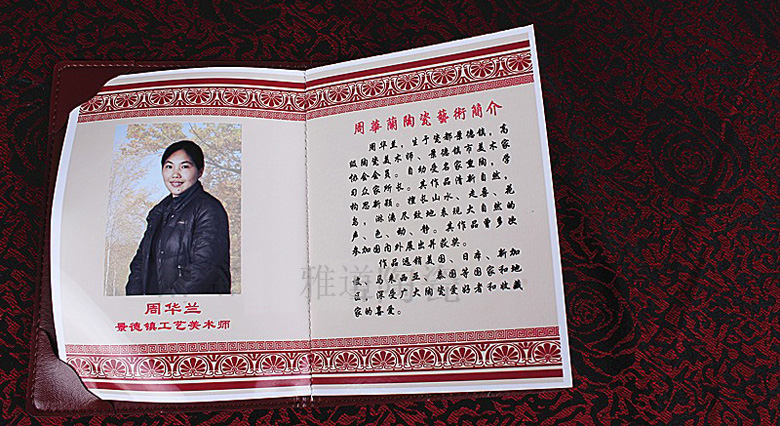 周华兰
景德镇工艺美术师
周華蘭陶瓷藝術簡介
周华兰，生于瓷都景德镇，高
级陶瓷美术师、景德镇市美术家
协会会员。自幼受名家熏陶，学
习众家所长。其作品清新自然，
构思新颖。擅长山水、走兽、花
鸟，淋漓尽致地表现大自然的
声、色、动、静。其作品曾多次
参加国内外展出并获奖。
作品远销美国、日本、新加
坡、马来西亚、泰国等国家和地
区，深受广大陶瓷爱好者和收藏
家的喜爱。
雅道陶瓷